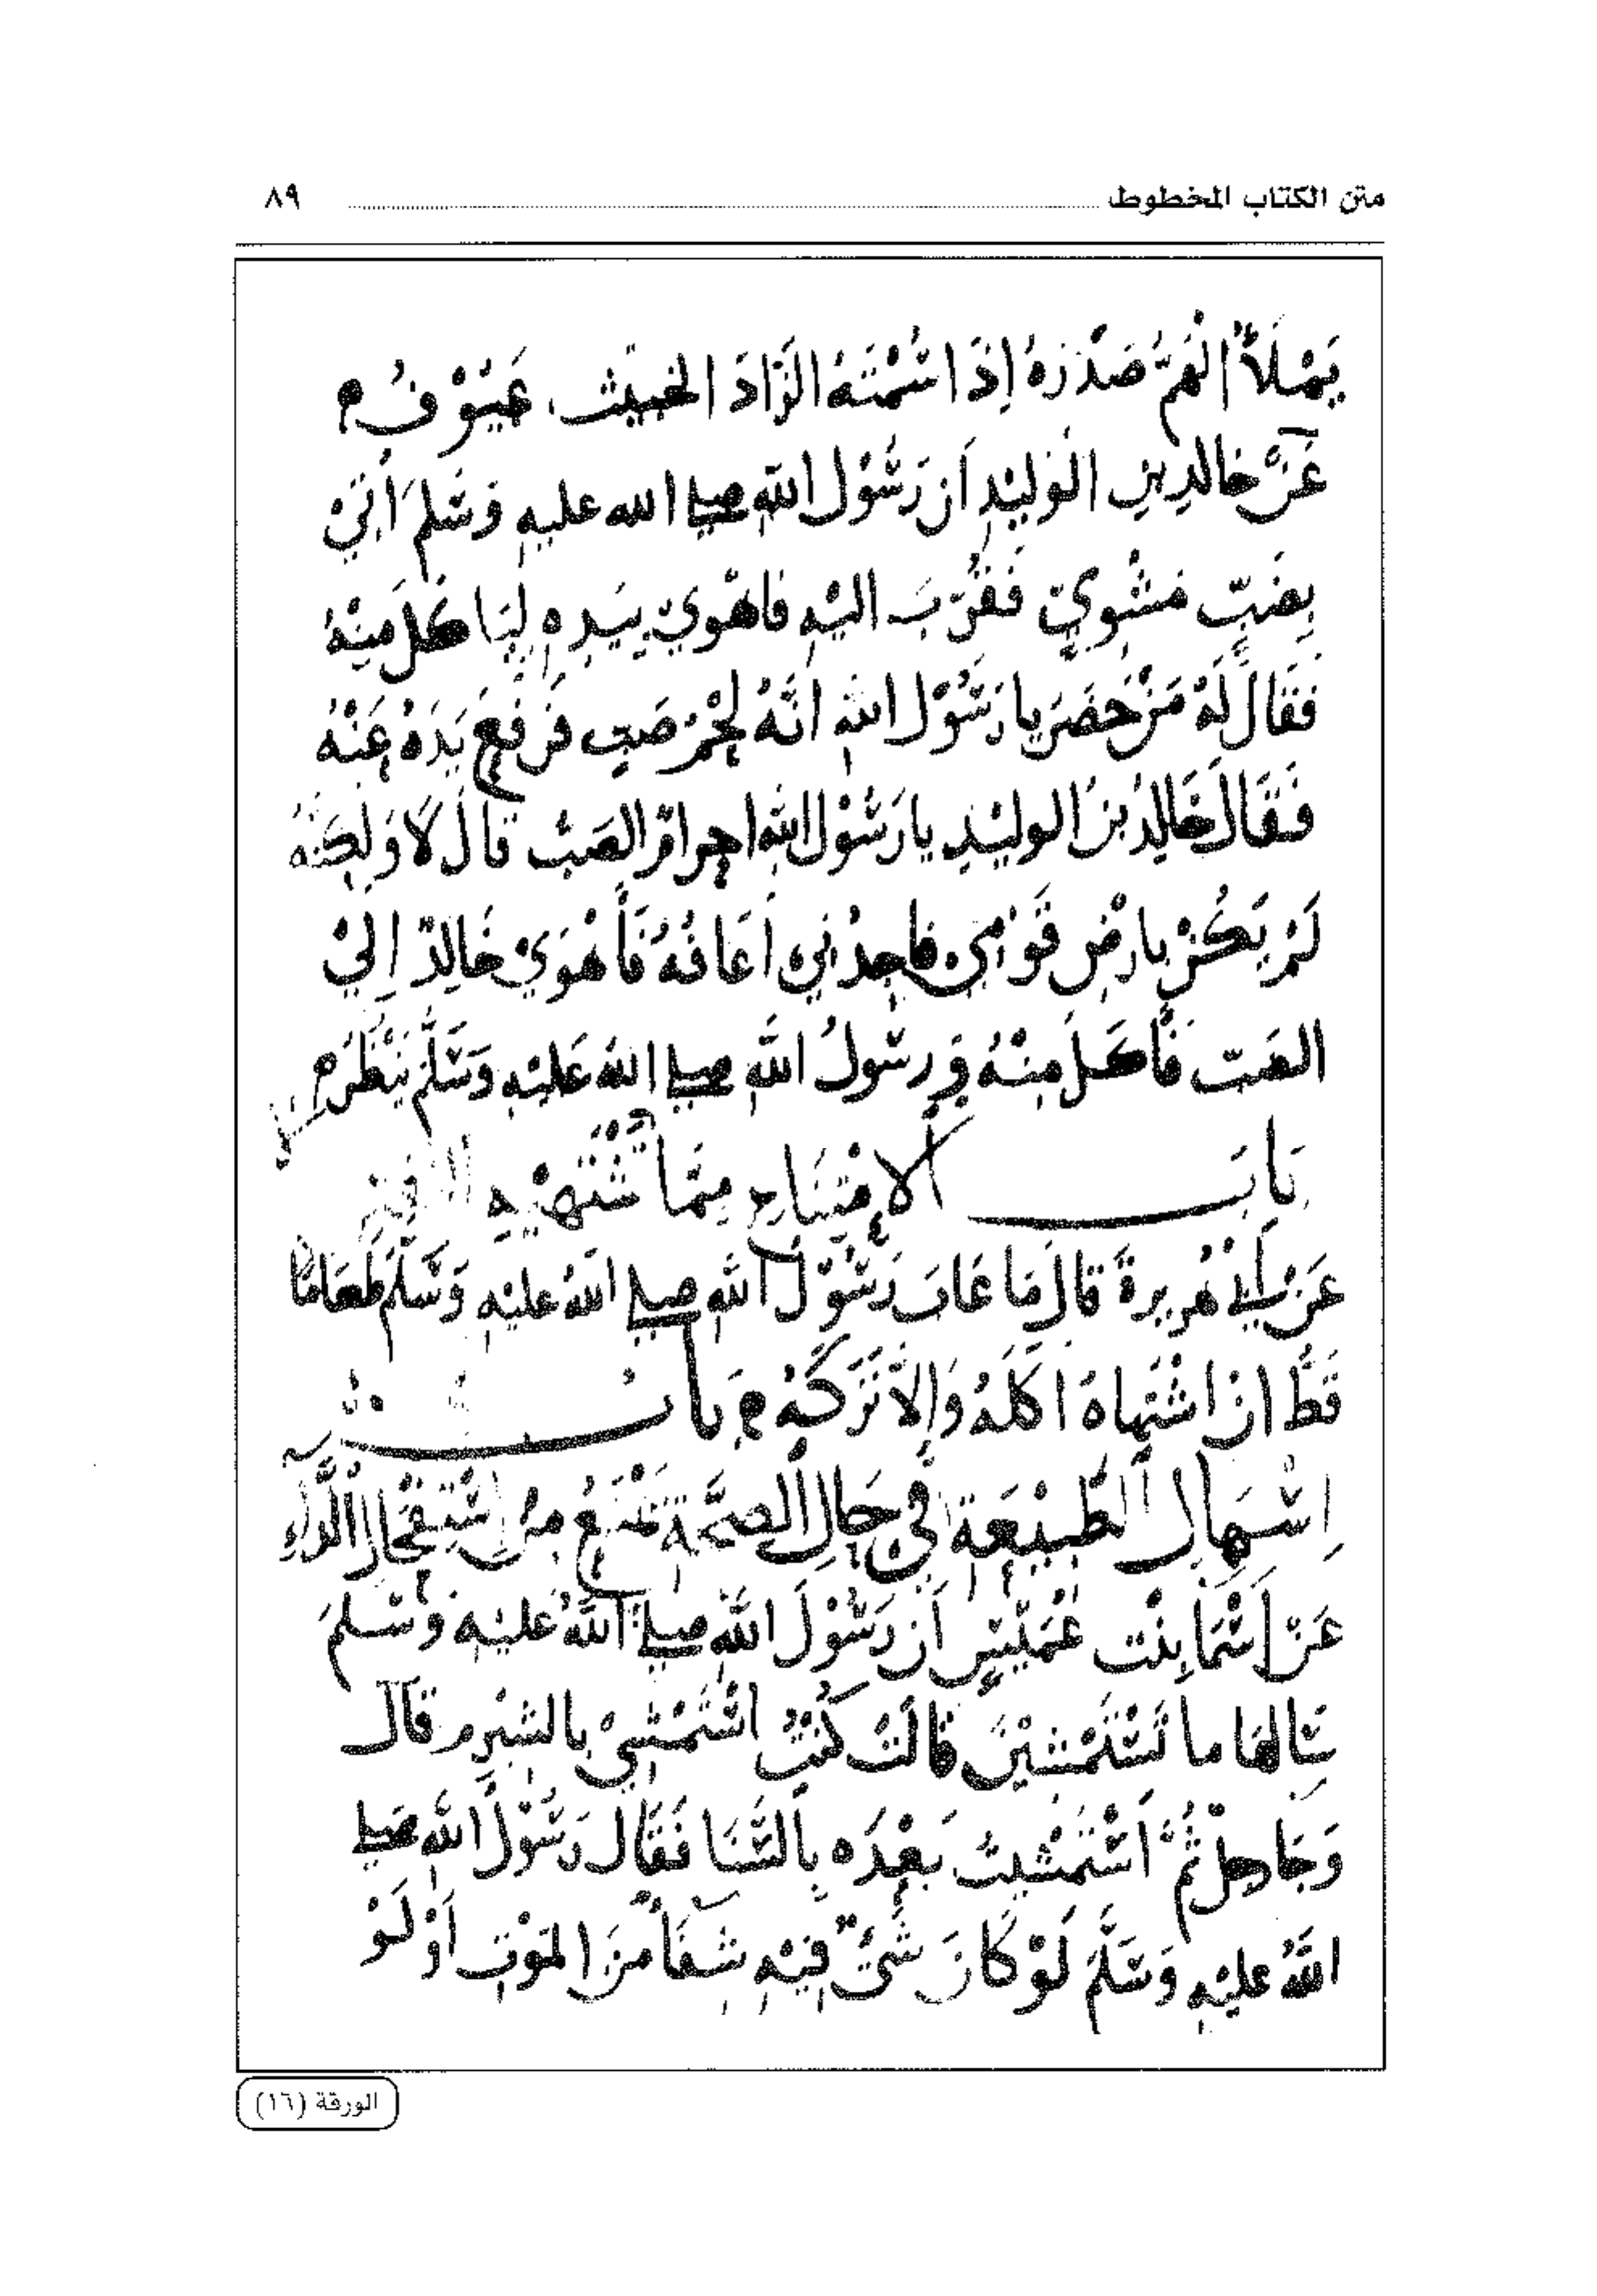 متن الكتاب المخطوط ٨٩
يَمْلَأُ الهَمُّ صَدْرَهُ إِذَا شَمَّتَهُ الزَّادَ الخبيث عَيُوْفُ م
عَنْ خالدِ بنِ الوَليْدِ أن رَسُوْل اللهِ صلى الله عليه وَسَلمَ أُتِيْ
بِضَبٍّ مَشْوِيّ فَقُرِّبَ اليْهِ فاهْوَيْ بِيَدِهِ لِيَاكُلَ مِنْهُ
فَقَالَ لَهُ مَنْ حَضَرَ يا رَسُوْل اللهِ انَّهُ لَحْمُ ضَبٍّ فَرَفَعَ يَدَهُ عَنْهُ
فَقَالَ خَالِدُ بنُ الوليْدِ يا رَسُوْل اللهِ احرامٌ الضَبُّ قالَ لَا وَلكِنَّهُ
لَمْ يَكُنْ بارْضِ قَوْمِي فاجِدُنِي أَعَافُهُ فَأَهْوَيْ خَالِدٌ إِليْ
الضَبِّ فَأَكَلَ مِنْهُ وَرسُولُ اللهِ صلى اللهُ عَلَيْهِ وَسَلَّمَ يَنْظُرُ م
بَابُ الامْتِنَاعِ مِمَّا تَشْتَهِيْهِ
عَنْ أَبِي هُريرةَ قالَ مَا عَابَ رَسُوْلُ اللهِ صلى اللهُ عليْهِ وَسَلَّمَ طَعَامًا
قَطُّ ان اشْتَهاهُ اكَلَهُ وَإِلَّا تَرَكَهُ م بَابُ
إِسْهَالِ الطَّبِيْعَةِ فِي حَالِ الصِّحَّةِ تَمْنَعُ مِنِ اسْتِفْحَالِ الدَّآءِ
عَنْ أَسْمَا بِنْتِ عُمَيْسٍ أن رَسُوْلَ اللهِ صلى اللهُ عليْهِ وَسَلمَ
سَالهَا ما تَسْتَمْشِيْنَ قالَتْ كُنْتُ اسْتَمْشِيْ بالشُبْرمِ قالَ
وَحَارٌّ ثُمَّ اسْتَمْشَيْتُ بَعْدَه بِالسَّنَا فَقَالَ رَسُوْلُ اللهِ صلى
اللهُ عليْهِ وَسَلَّمَ لَوْ كَانَ شَيْءٌ فِيْهِ شِفَآءٌ مِنَ المَوْتِ أَوْ لَوْ
الورقة (١٦)